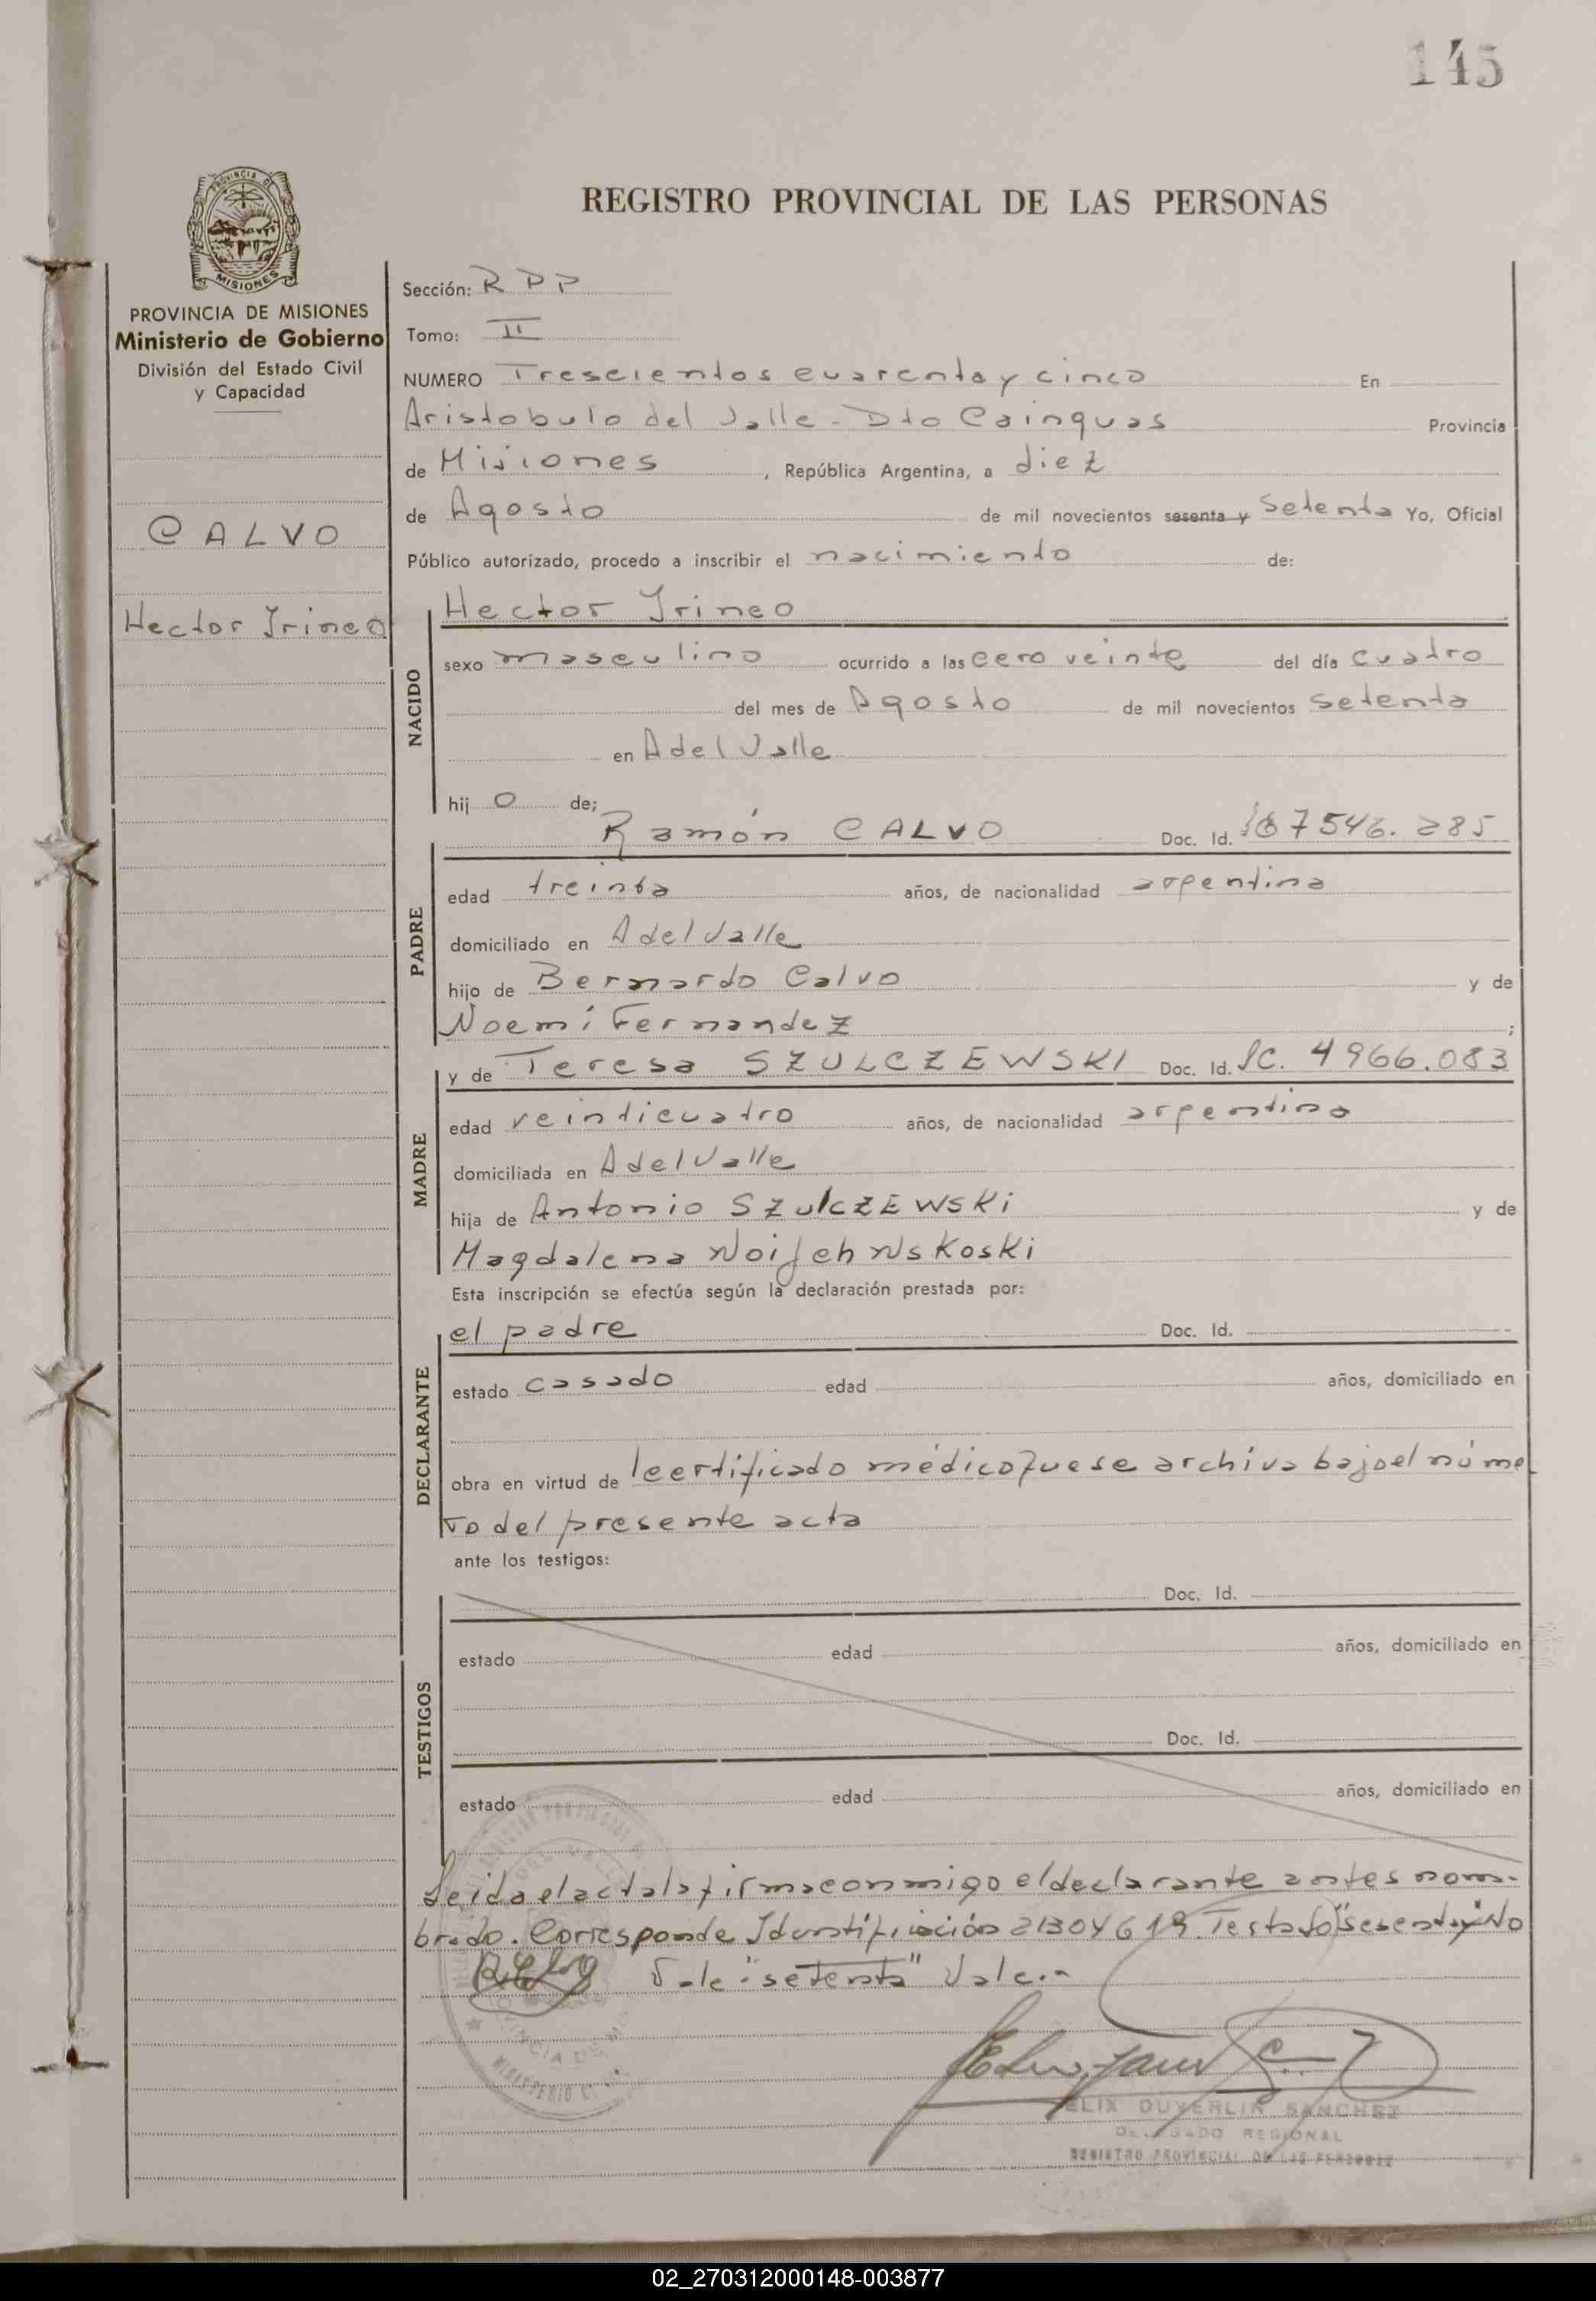 145
PROVINCIA DE
MISIONES
REGISTRO PROVINCIAL DE LAS PERSONAS
PROVINCIA DE MISIONES
Ministerio de Gobierno
División del Estado Civil
y Capacidad
CALVO
Hector Irineo
Sección: RPP
Tomo: II
NUMERO Trescientos cuarenta y cinco En
Aristobulo del Valle - Dto Cainguas Provincia
de Misiones, República Argentina, a diez
de Agosto de mil novecientos sesenta y Setenta Yo, Oficial
Público autorizado, procedo a inscribir el nacimiento de:
NACIDO
Hector Irineo
sexo masculino ocurrido a las cero veinte del día cuatro
del mes de Agosto de mil novecientos setenta
en A del Valle
hij o de;
Ramón CALVO Doc. Id. 7546.285
PADRE
edad treinta años, de nacionalidad argentina
domiciliado en A del Valle
hijo de Bernardo Calvo y de
Noemi Fernandez ;
y de Teresa SZULCZEWSKI Doc. Id. LC. 4966.083
MADRE
edad veinticuatro años, de nacionalidad argentina
domiciliada en A del Valle
hija de Antonio SZulCZEWSKi y de
Magdalena
Esta inscripción se efectúa según la declaración prestada por:
el padre Doc. Id.
DECLARANTE
estado casado edad años, domiciliado en
obra en virtud de certificado médico que se archiva bajo el núme
ro del presente acta
ante los testigos:
TESTIGOS
Doc. Id.
estado edad años, domiciliado en
Doc. Id.
estado edad años, domiciliado en
Leida el acta la firma conmigo el declarante antes nom-
brado. Corresponde Identificación 21304619. Testado "sesenta y" No
Vale "setenta" Vale.-
ELIX DUVERLIN SANCHEZ
DELEGADO REGIONAL
REGISTRO PROVINCIAL DE LAS PERSONAS
02_270312000148-003877